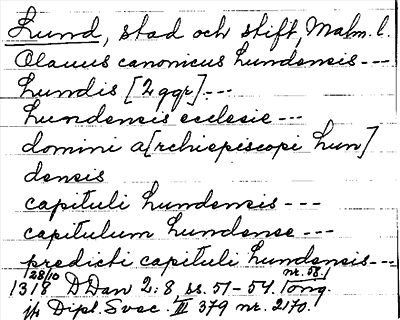 Lund, stad och stift, Malm. l.
Olauus canonicus Lundensis ---
Lundis [2 ggr] ---
Lundensis ecclesie ---
domini a[rchiepiscopi Lun]
densis
capituli Lundensis ---
capitulum Lundense ---
predicti capituli Lundensis ---
28/10 nr. 58.
1318 DDan 2:8, ss. 51-54. orig.
jfr Dipl. Svec. III 379 nr. 2170.